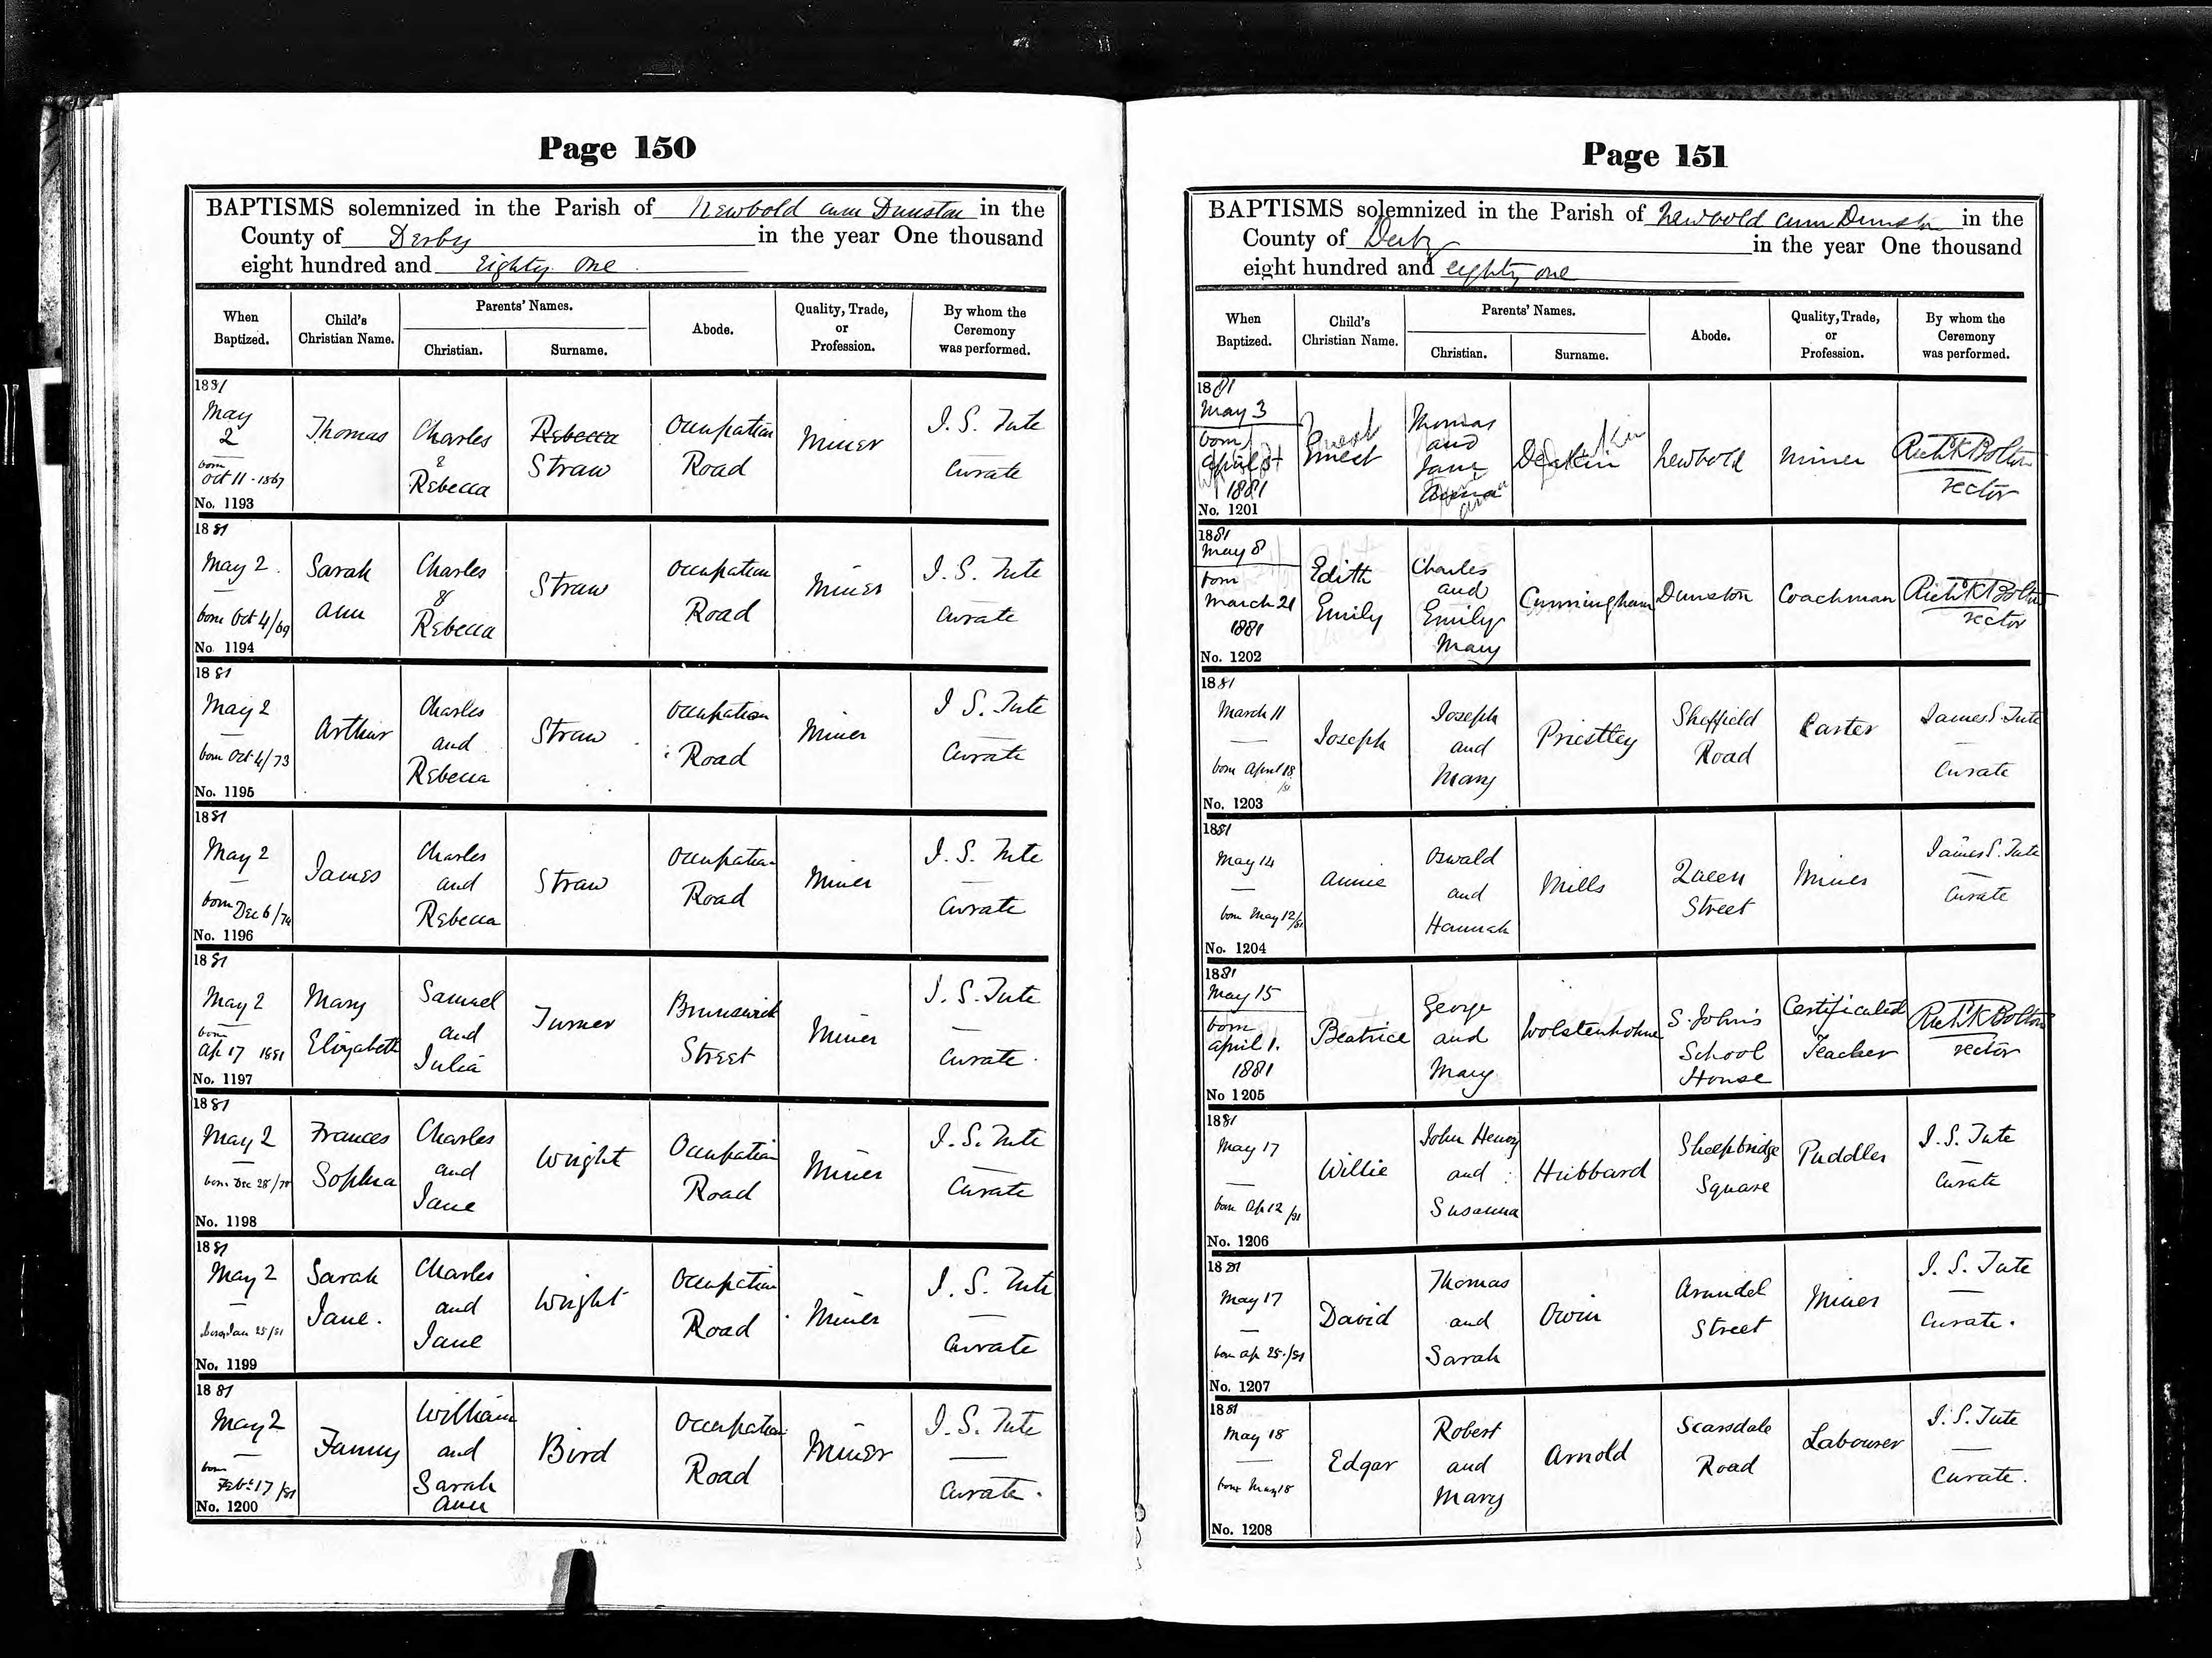 Page 150
BAPTISMS solemnized in the Parish of Newbold cum Dunston in the
County of Derby in the year One thousand
eight hundred and Eighty One
When Baptized. Child's Christian Name. Parents' Names. Christian. Surname. Abode. Quality, Trade, or Profession. By whom the Ceremony was performed.
1881 May 2 born Oct 11 - 1867 No. 1193 Thomas Charles & Rebecca Rebecca Straw Occupation Road Miner J. S. Tute Curate
1881 May 2. born Oct 4/69 No. 1194 Sarah Ann Charles & Rebecca Straw Occupation Road Miner J. S. Tute Curate
1881 May 2 born Oct 4/73 No. 1195 Arthur Charles and Rebecca Straw Occupation Road Miner J S. Tute Curate
1881 May 2 born Dec 6/74 No. 1196 James Charles and Rebecca Straw Occupation Road Miner J. S. Tute Curate
1881 May 2 born Ap 17 1881 No. 1197 Mary Elizabeth Samuel and Julia Turner Brunswick Street Miner J. S. Tute Curate.
1881 May 2 born Dec 28/78 No. 1198 Frances Sophia Charles and Jane Wright Occupation Road Miner J. S. Tute Curate
1881 May 2 born Jan 25/81 No. 1199 Sarah Jane. Charles and Jane Wright Occupation Road Miner J. S. Tute Curate
1881 May 2 born Feb 17/81 No. 1200 Fanny William and Sarah Ann Bird Occupation Road Miner J. S. Tute Curate.
Page 151
BAPTISMS solemnized in the Parish of Newbold cum Dunston in the
County of Derby in the year One thousand
eight hundred and eighty one
When Baptized. Child's Christian Name. Parents' Names. Christian. Surname. Abode. Quality, Trade, or Profession. By whom the Ceremony was performed.
1881 May 3 born April 1881 No. 1201 Ernest Thomas and Jane Deakin Newbold Miner Rich K Bolton rector
1881 May 8 born March 21 1881 No. 1202 Edith Emily Charles and Emily Mary Cunningham Dunston Coachman Rich K Bolton rector
1881 March 11 born April 18 /81 No. 1203 Joseph Joseph and Mary Priestley Sheffield Road Carter James S. Tute Curate
1881 May 14 born May 12/81 No. 1204 Annie Oswald and Hannah Mills Queen Street Miner James S. Tute Curate
1881 May 15 born April 1. 1881 No 1205 Beatrice George and Mary Wolstenholme S. John's School House Certificated Teacher Rich K Bolton rector
1881 May 17 born Ap 12 /81 No. 1206 Willie John Henry and Susanna Hubbard Sheepbridge Square Puddler J. S. Tute Curate
1881 May 17 born Ap 25./81 No. 1207 David Thomas and Sarah Owin Arundel Street Miner J. S. Tute Curate.
1881 May 18 born May 18 No. 1208 Edgar Robert and Mary Arnold Scarsdale Road Labourer J. S. Tute Curate.